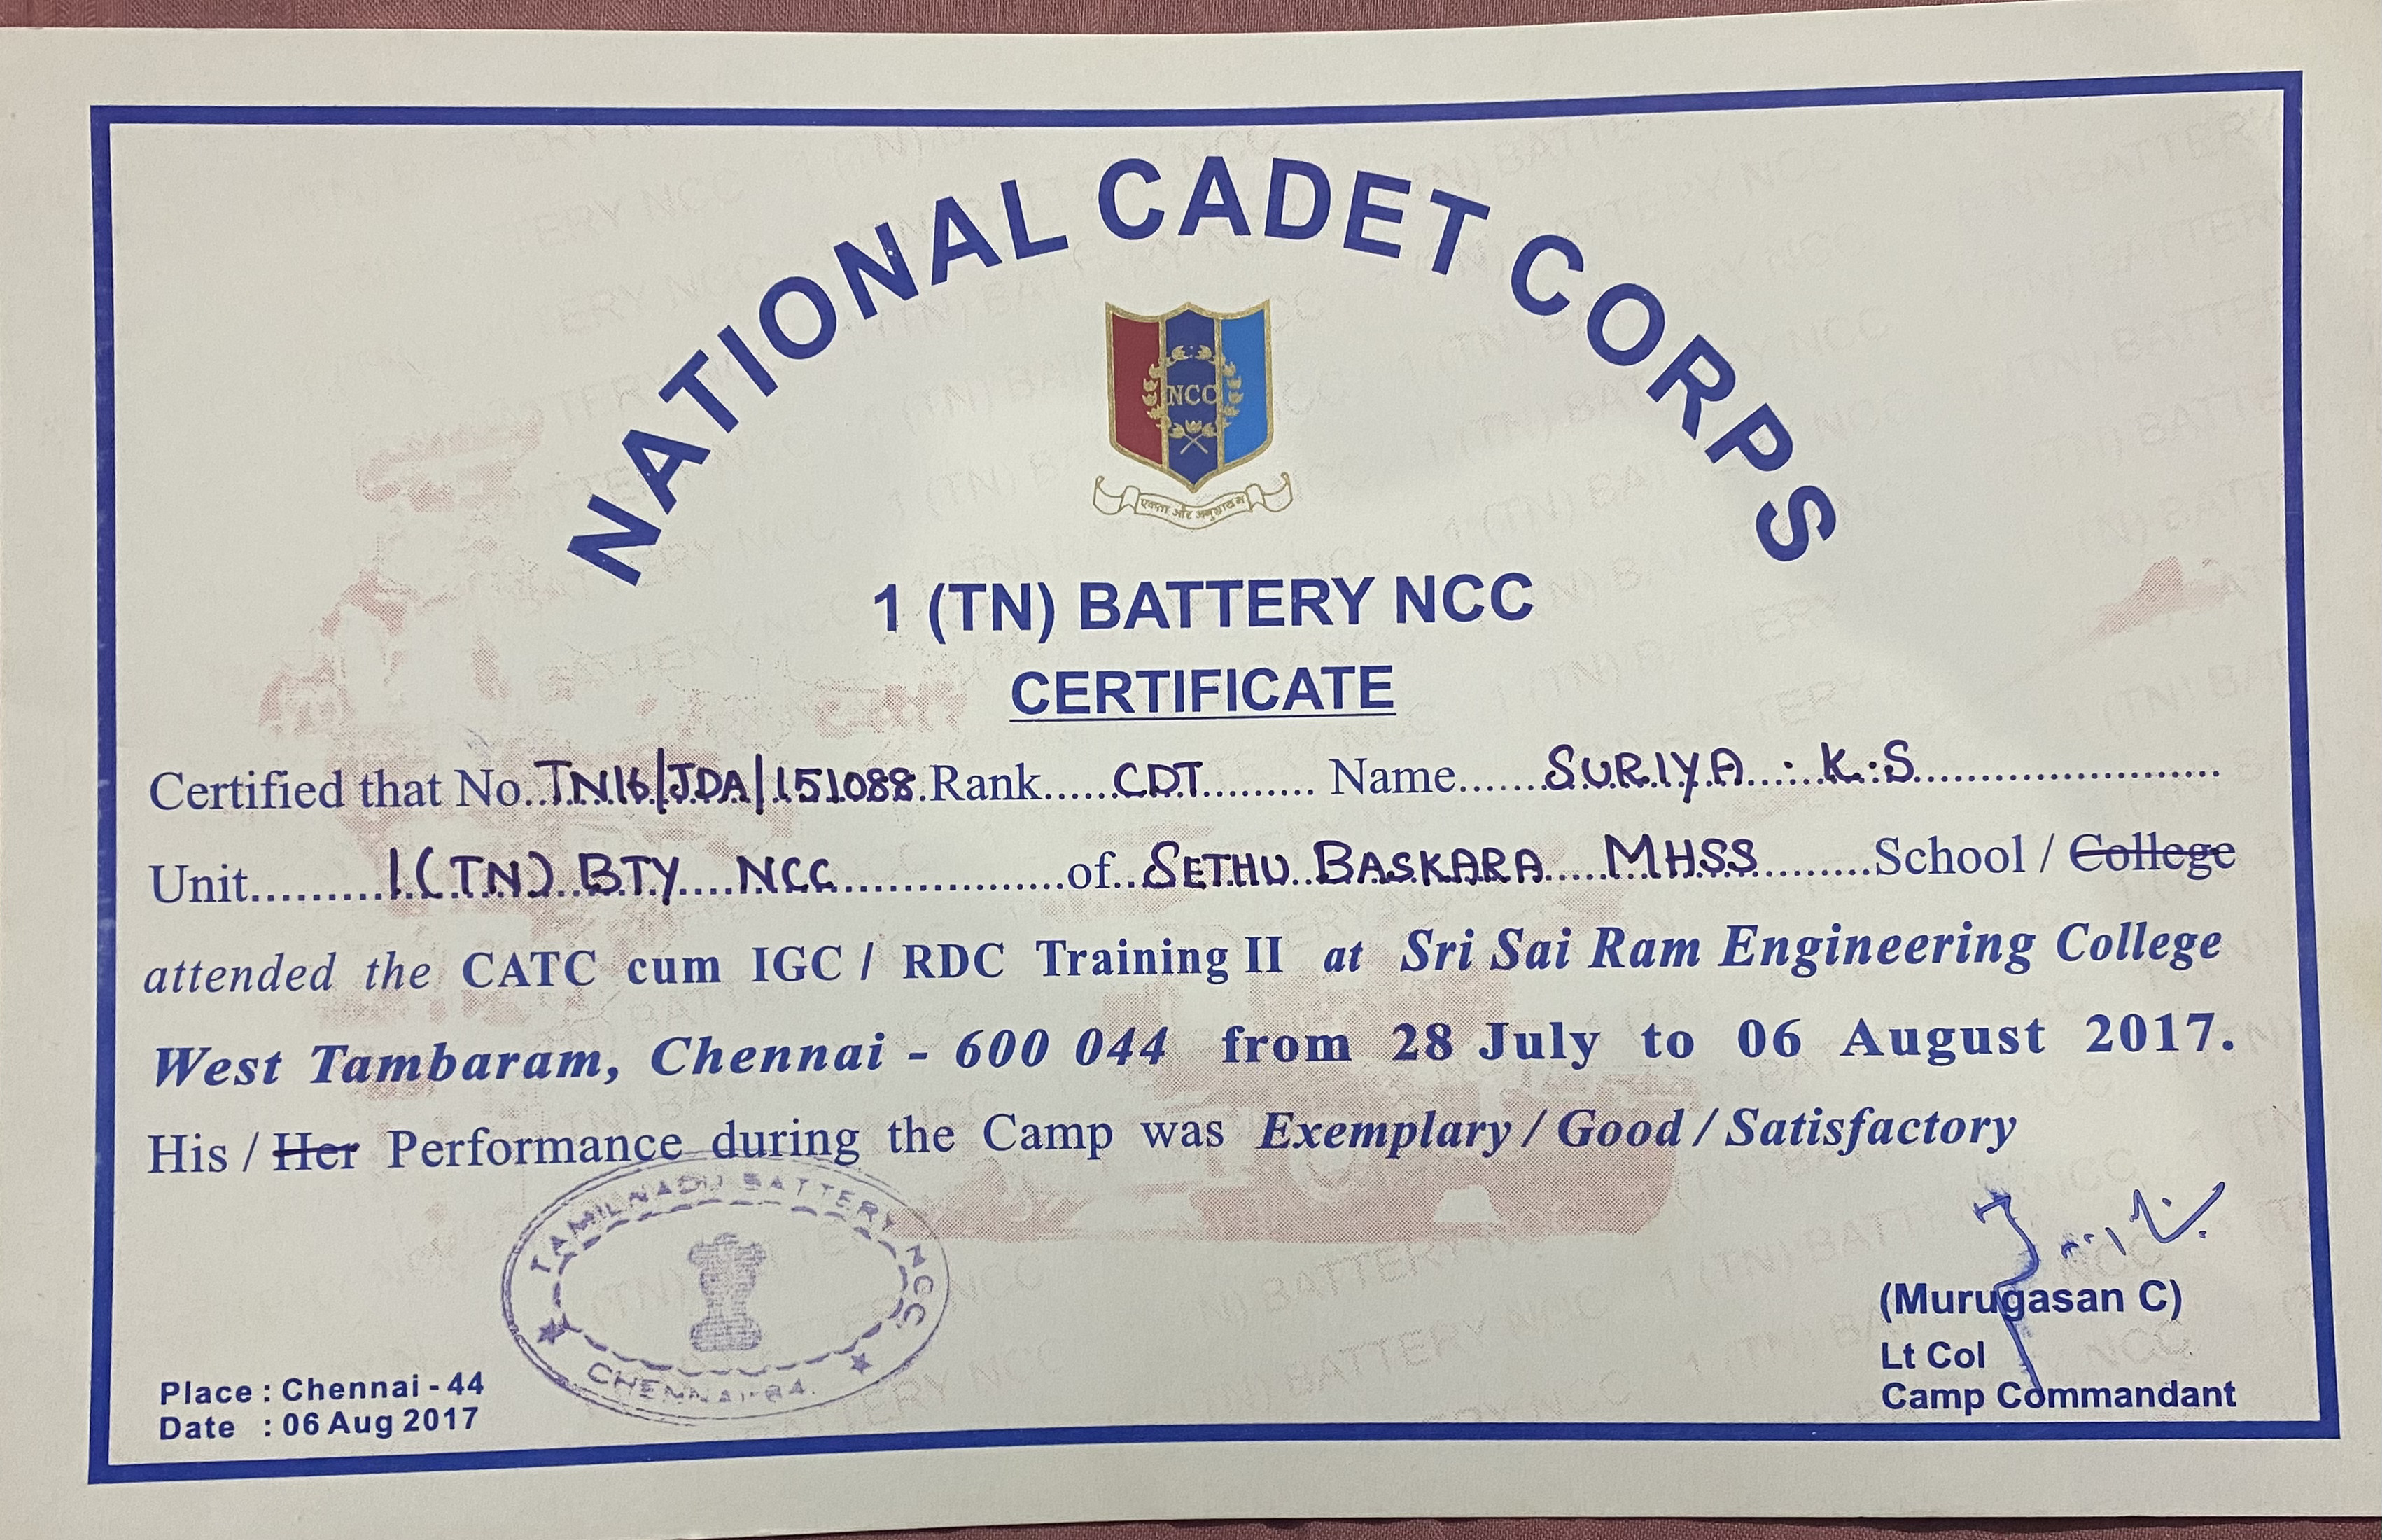 NATIONAL CADET CORPS
NCC
एकता और अनुशासन
1 (TN) BATTERY NCC
CERTIFICATE
Certified that No. TN16/JDA/151088 Rank CDT Name SURIYA . K.S
Unit 1 (TN) BTY NCC of SETHU BASKARA MHSS School / College
attended the CATC cum IGC / RDC Training II at Sri Sai Ram Engineering College
West Tambaram, Chennai - 600 044 from 28 July to 06 August 2017.
His / Her Performance during the Camp was Exemplary / Good / Satisfactory
TAMILNADU BATTERY NCC
CHENNAI-84.
(Murugasan C)
Lt Col
Camp Commandant
Place : Chennai - 44
Date : 06 Aug 2017